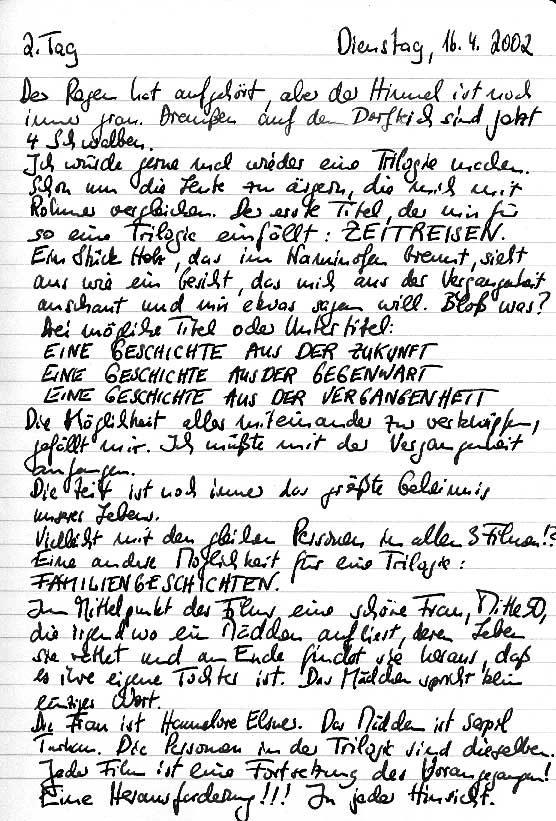 2. Tag Dienstag, 16. 4. 2002
Der Regen hat aufgehört, aber der Himmel ist noch
immer grau. Draußen auf dem Dorfteich sind jetzt
4 Schwalben.
Ich würde gerne mal wieder eine Trilogie machen.
Schon um die Leute zu ärgern, die mich mit
Rohmer vergleichen. Der erste Titel, der mir für
so eine Trilogie einfällt: ZEITREISEN.
Ein Stück Holz, das im Kaminofen brennt, sieht
aus wie ein Gesicht, das mich aus der Vergangenheit
anschaut und mir etwas sagen will. Bloß was?
Drei mögliche Titel oder Untertitel:
EINE GESCHICHTE AUS DER ZUKUNFT
EINE GESCHICHTE AUS DER GEGENWART
EINE GESCHICHTE AUS DER VERGANGENHEIT
Die Möglichkeit alles miteinander zu verknüpfen,
gefällt mir. Ich müßte mit der Vergangenheit
anfangen.
Die Zeit ist noch immer das größte Geheimnis
unseres Lebens.
Vielleicht mit den gleichen Personen in allen 3 Filmen!?
Eine andere Möglichkeit für eine Trilogie:
FAMILIENGESCHICHTEN.
Im Mittelpunkt des Films eine schöne Frau, Mitte 50,
die irgendwo ein Mädchen aufliest, deren Leben
sie rettet und am Ende findet sie heraus, daß
es ihre eigene Tochter ist. Das Mädchen spricht kein
einziges Wort.
Die Frau ist Hannelore Elsner. Das Mädchen ist
Die Personen in der Trilogie sind dieselben.
Jeder Film ist eine Fortsetzung des Vorangegangen!
Eine Herausforderung!!! In jeder Hinsicht.